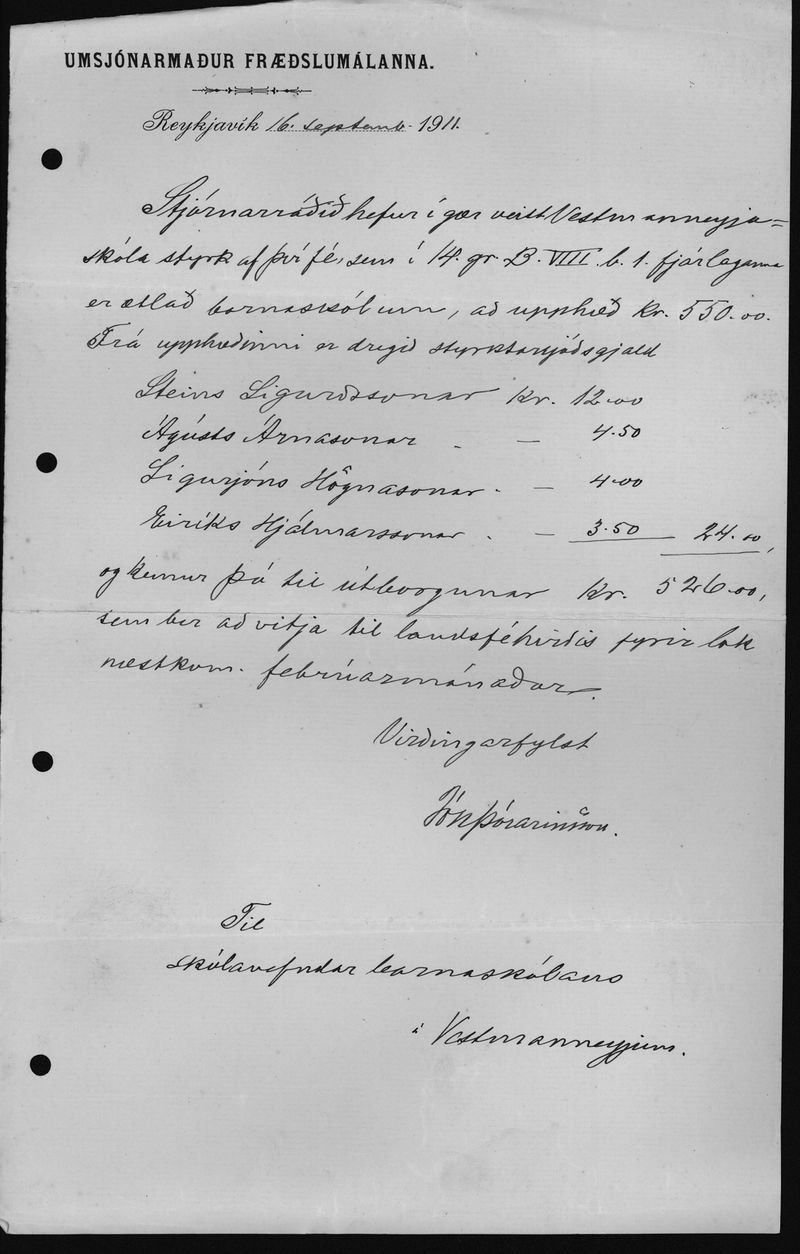 UMSJÓNARMAÐUR FRÆÐSLUMÁLANNA.
Reykjavík 16. septemb. 1911.
Stjórnarráðið hefur í gær veitt Vestmanneyja=
skóla styrk af því fé, sem í 14. gr. B. VIII. b. 1. fjárlaganna
er ætlað barnaskólum, að upphæð kr. 550.00.
Frá upphæðinni er dregið styrktarsjóðsgjald
Steins Sigurðssonar kr. 12.00
Ágústs Árnasonar - — 4.50
Sigurjóns Högnasonar - — 4.00
Eiríks Hjálmarssonar - — 3.50 24.00,
og kemur þá til útborgunar kr. 526.00,
sem ber að vitja til landsféhirðis fyrir lok
næstkom. febrúarmánaðar.
Virðingarfylst
Jón Þórarinsson.
Til
skólanefndar barnaskólans
í Vestmanneyjum.